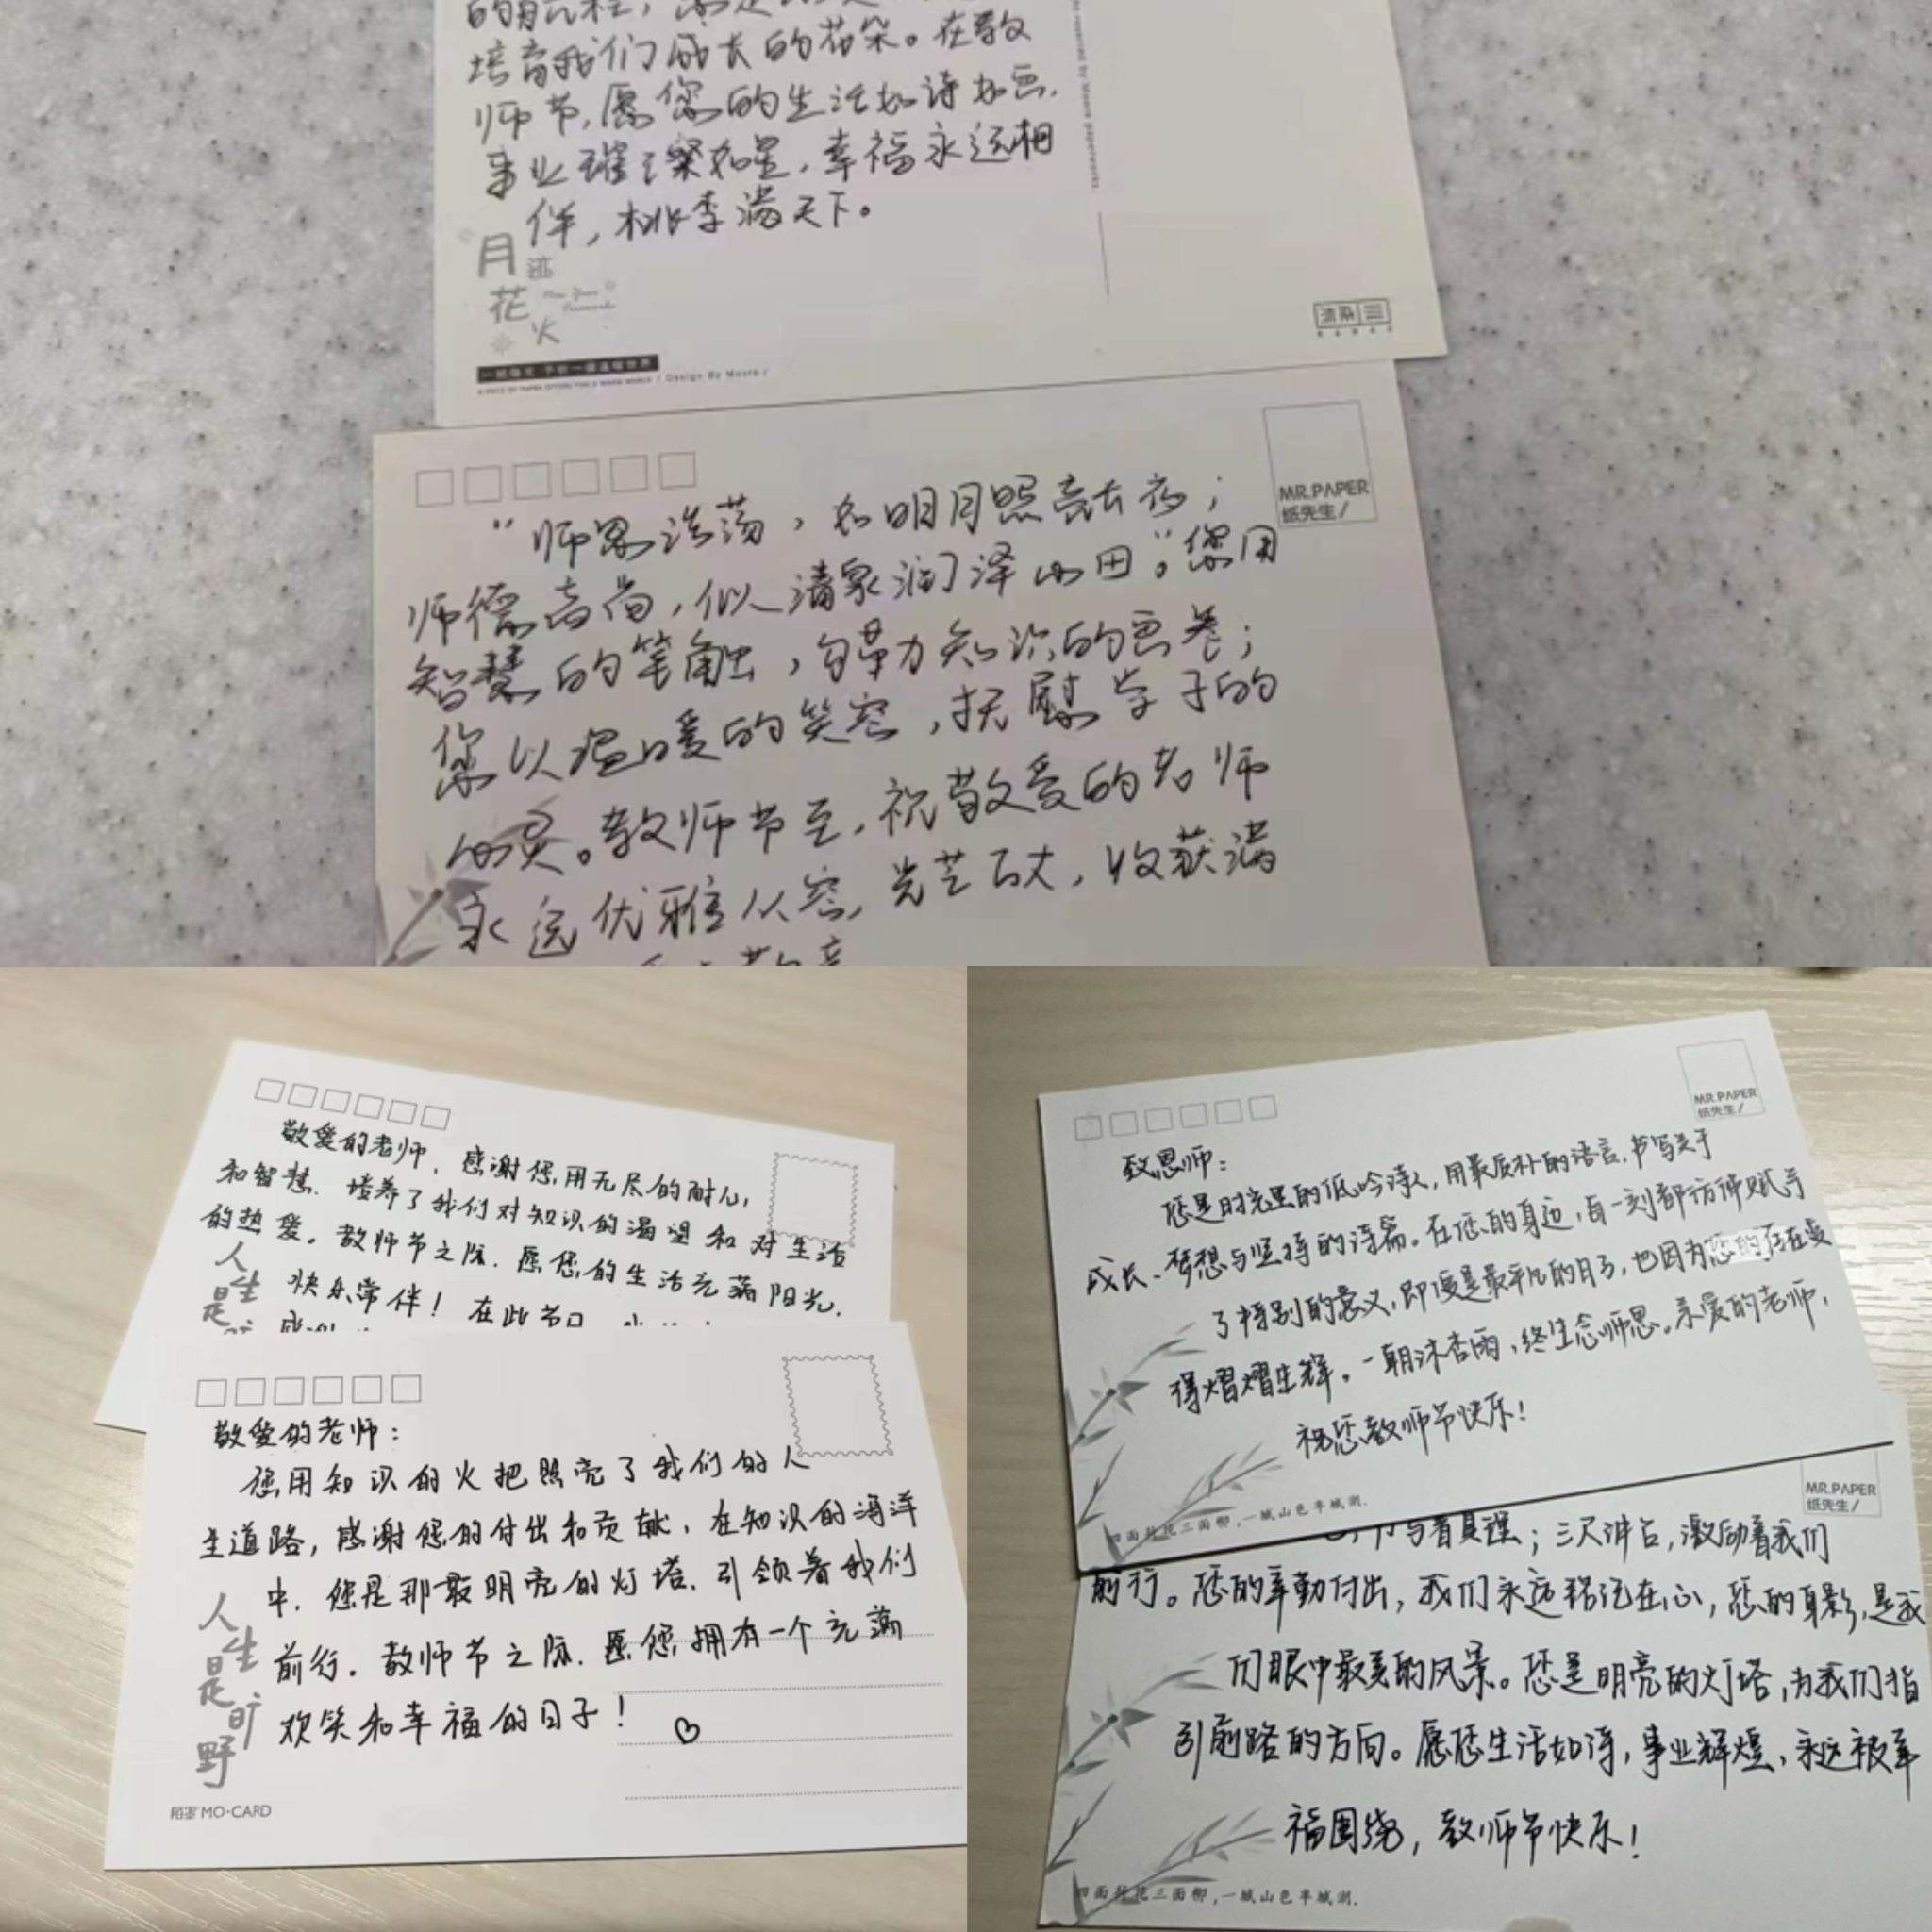 培育我们成长的花朵。在教
师节,愿您的生活如诗如画,
事业璀璨如星,幸福永远相
伴,桃李满天下。
月
花
火
Design By Moore /
MR.PAPER
纸先生/
“师恩浩荡,如明月照亮长夜;
师德高尚,似清泉润泽心田。”您用
智慧的笔触,勾革力知识的画卷;
您以温暖的笑容,抚慰学子的
心灵。教师节至,祝敬爱的老师
永远优雅从容,光芒万丈,收获满
敬爱的老师,感谢您用无尽的耐心
和智慧,培养了我们对知识的渴望和对生活
的热爱。教师节之际,愿您的生活充满阳光,
快乐常伴!在此节日
人生是旷
敬爱的老师:
您用知识的火把照亮了我们的人
生道路,感谢您的付出和贡献,在知识的海洋
中,您是那最明亮的灯塔,引领着我们
前行。教师节之际,愿您拥有一个充满
欢笑和幸福的日子!
人生是旷野
陌写 MO·CARD
MR.PAPER
纸先生/
致恩师:
您是时光里的低吟诗人,用最质朴的语言,书写关于
成长、梦想与坚持的诗篇。在您的身边,每一刻都仿佛赋予
了特别的意义,即便是最平凡的日子,也因为您的存在变
得熠熠生辉。一朝沐杏雨,终生念师恩。亲爱的老师,
祝您教师节快乐!
四面荷花三面柳,一城山色半城湖.
MR.PAPER
纸先生/
写着真理;三尺讲台,激励着我们
前行。您的辛勤付出,我们永远铭记在心,您的身影,是我
们眼中最美的风景。您是明亮的灯塔,为我们指
引前路的方向。愿您生活如诗,事业辉煌,永远被幸
福围绕,教师节快乐!
四面荷花三面柳,一城山色半城湖.